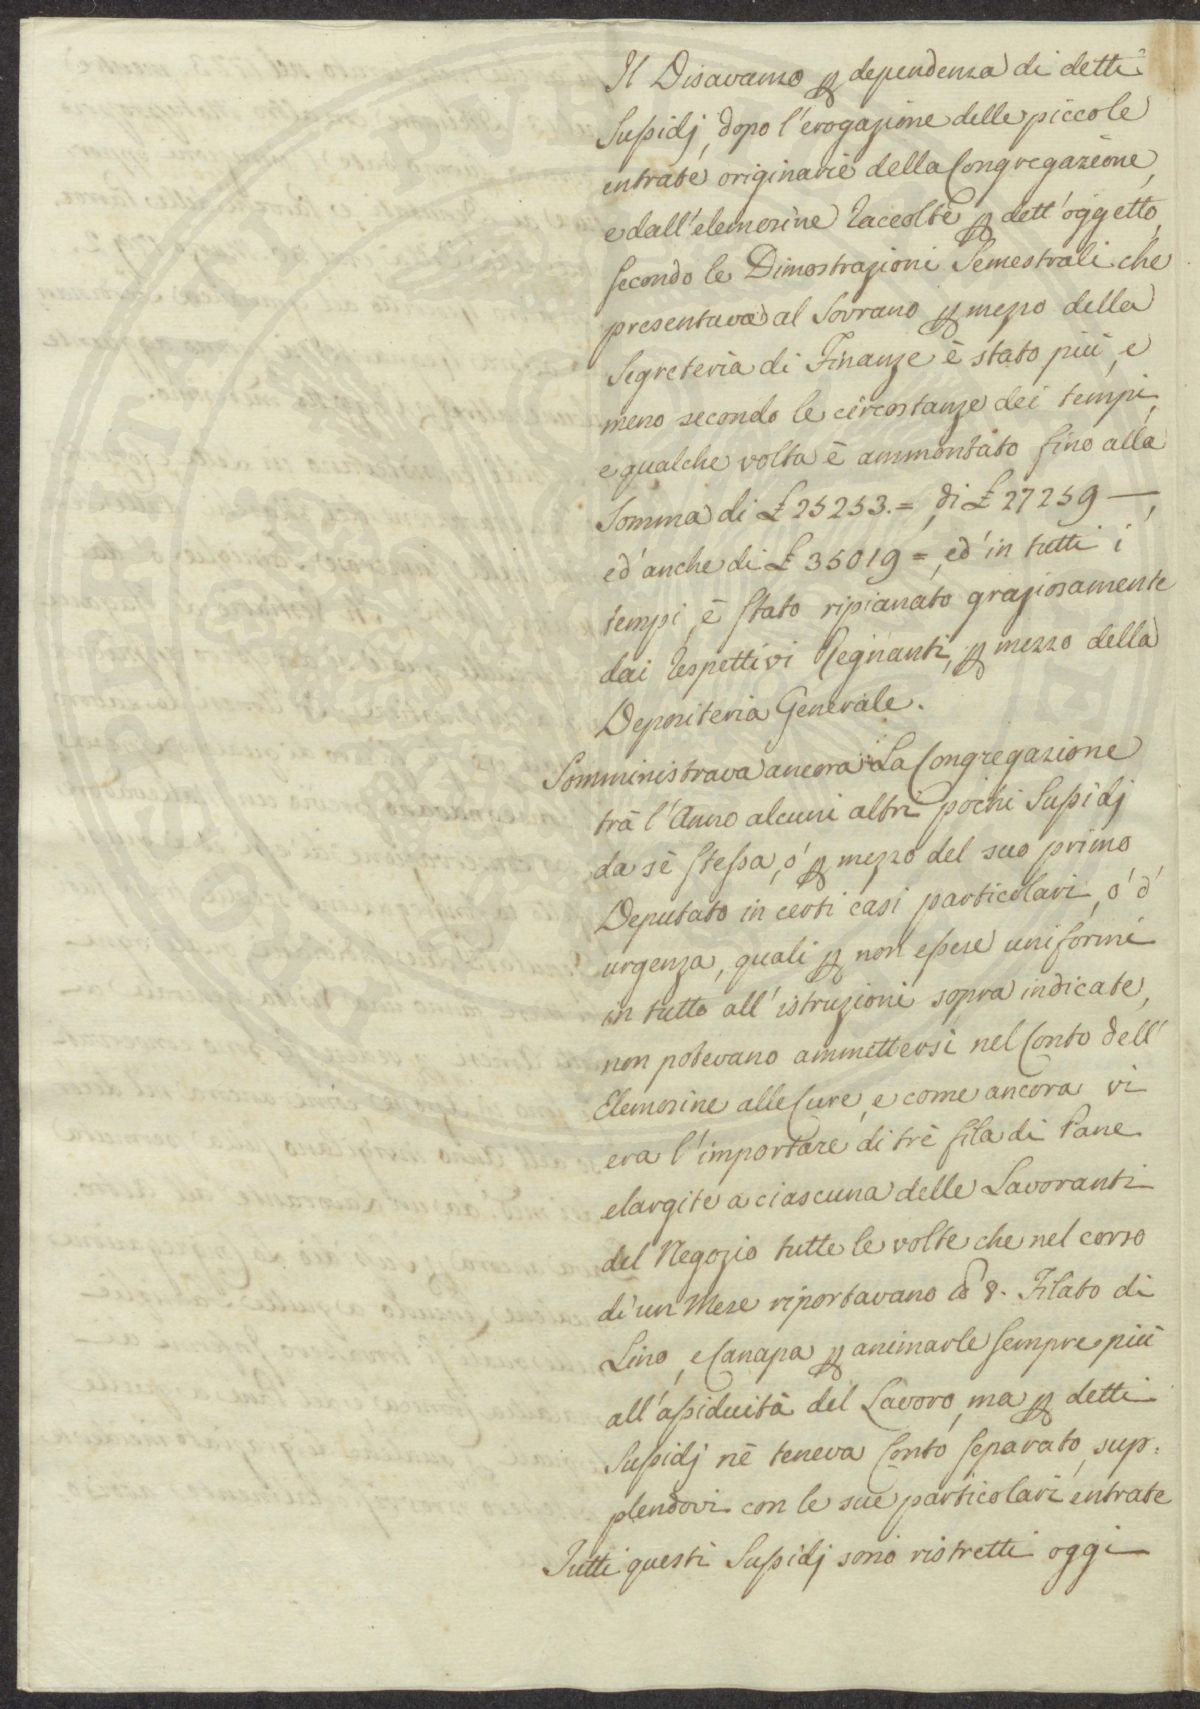 Il Disavanzo p dependenza di detti
Sussidj, dopo l'erogazione delle piccole
entrate originarie della Congregazione,
e dall'elemosine raccolte p dett'oggetto,
secondo le Dimostrazioni Semestrali che
presentava al Sovrano p mezzo della
Segreteria di Finanze è stato più, e
meno secondo le circostanze dei tempi,
e qualche volta è ammontato fino alla
Somma di £ 25253.=, di £ 27259 —,
ed'anche di £ 35019 =, ed'in tutti i
tempi, è stato ripianato graziosamente
dai respettivi Regnanti, p mezzo della
Depositeria Generale.
Somministrava ancora La Congregazione
trà l'Anno alcuni altri pochi Sussidj
da sè stessa, ó p mezzo del suo primo
Deputato in certi casi particolari, ó d'
urgenza, quali p non essere uniformi
in tutto all'istruzioni sopra indicate,
non potevano ammettersi nel Conto dell'
Elemosine alle Cure, e come ancora vi
era l'importare di trè fila di Pane
elargite a ciascuna delle Lavoranti
del Negozio tutte le volte che nel corso
di un Mese riportavano lb 8. Filato di
Lino, e Canapa p animarle sempre più
all'assiduità del Lavoro, ma p detti
Sussidj nè teneva Conto separato, sup=
plendovi con le sue particolari entrate
Tutti questi Sussidj sono ristretti oggi